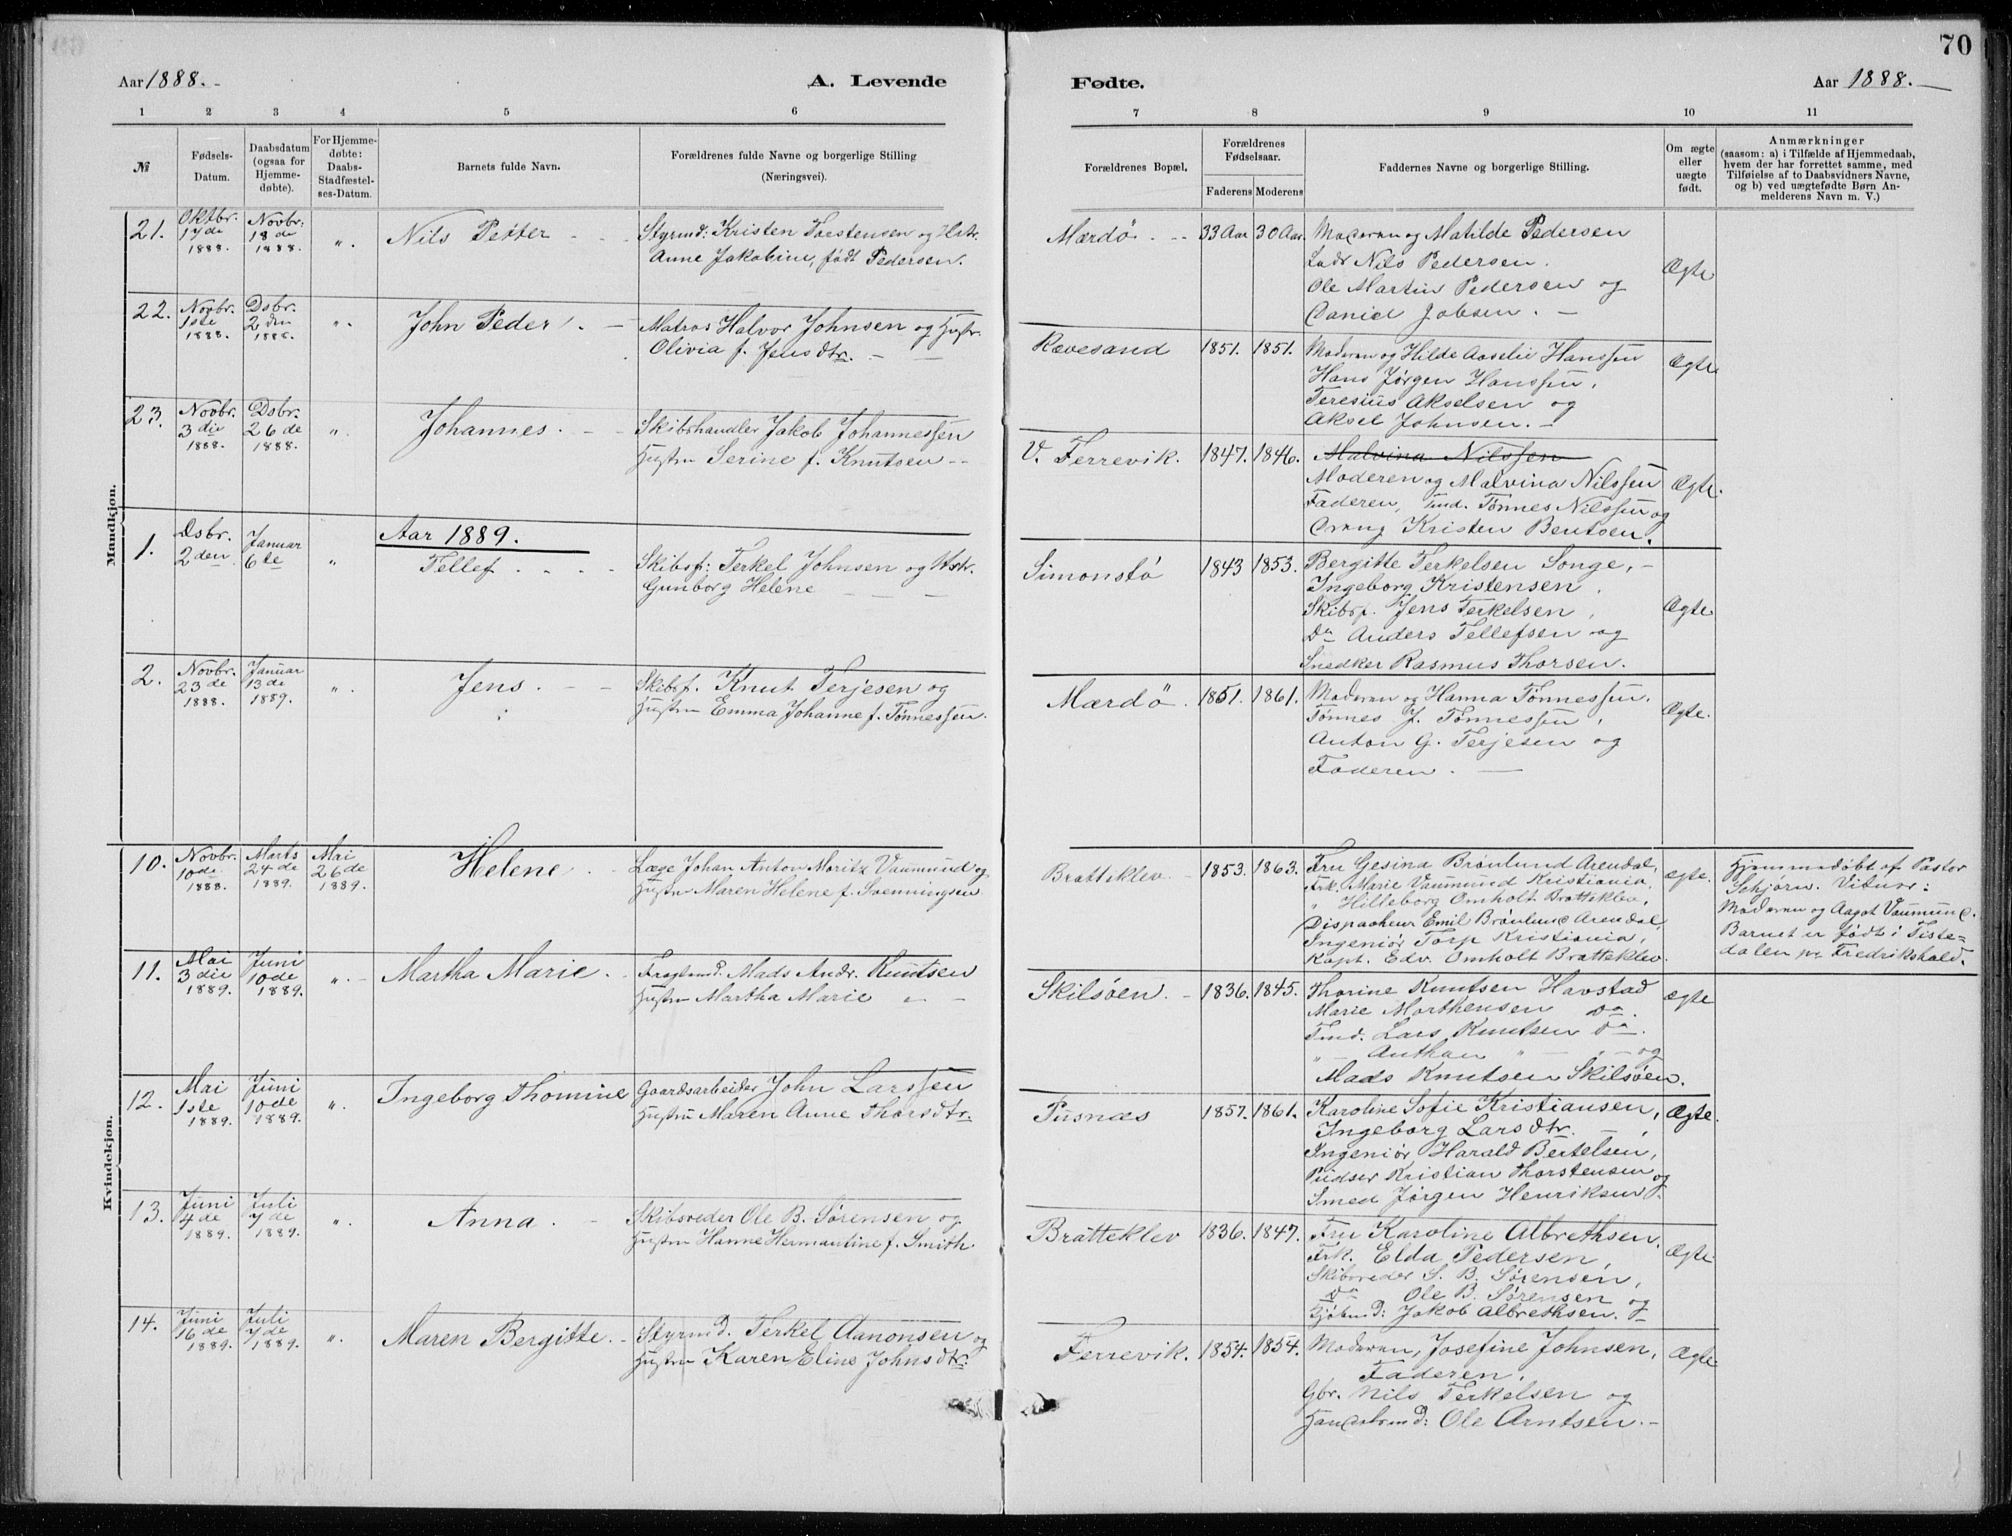 70
Aar 1888.
A. Levende
Fødte.
Aar 1888.
1 2 3 4 5 6 7 8 9 10 11
№
Fødsels-
Datum.
Daabsdatum
(ogsaa for
Hjemme-
døbte).
For Hjemme-
døbte:
Daabs-
Stadfæstel-
ses-Datum.
Barnets fulde Navn.
Forældrenes fulde Navne og borgerlige Stilling
(Næringsvei).
Forældrenes Bopæl.
Forældrenes
Fødselsaar.
Faderens Moderens
Faddernes Navne og borgerlige Stilling.
Om ægte
eller
uægte
født.
Anmærkninger
(saasom: a) i Tilfælde af Hjemmedaab,
hvem der har forrettet samme, med
Tilføielse af to Daabsvidners Navne,
og b) ved uægtefødte Børn An-
melderens Navn m. V.)
Mandkjøn.
21.
Oktbr.
17de
1888.
Novbr.
18de
1888.
"
Nils Petter
Styrmd: Kristen Torstensen og Hstr.
Anne Jakobine, født Pedersen.
Mærdö
33 Aar 30 Aar.
Moderen og Matilde Pedersen
Lods Nils Pedersen.
Ole Martin Pedersen og
Daniel Jobsen.
Ægte
22.
Novbr.
1ste
1888.
Dsbr.
2den
1888.
"
John Peder
Matros Halvor Johnsen og Hustr.
Olivia f. Jensdtr.
Rævesand
1851. 1851.
Moderen og Hilde Aaselie Hanssen
Hans Jørgen Hanssen,
Teresius Akselsen og
Aksel Johnsen.
Ægte
23.
Novbr.
3die
1888.
Dsbr.
26de
1888.
"
Johannes.
Skibshandler Jakob Johannessen
Hustru Serine f. Knutsen
V. Ferrevik.
1847. 1846.
Malvina Nilssen
Moderen og Malvina Nilssen
Faderen, Tmd. Tønnes Nilssen og
Dreng Kristen Bentsen.
Ægte.
Aar 1889.
1.
Dsbr.
2den
Januar
6te
"
Tellef
Skibsf: Terkel Johnsen og Hstr.
Gunborg Helene
Simonstö
1843 1853.
Bergitte Terkelsen Songe,
Ingeborg Kristensen,
Skibsf. Jens Terkelsen,
Do Anders Tellefsen og
Snedker Rasmus Thorsen.
Ægte
2.
Novbr.
23de
1888.
Januar
13de
1889.
"
Jens.
Skibsf. Knut Terjesen og
Hustru Emma Johanne f. Tønnessen.
Mærdö
1851. 1861.
Moderen og Hanna Tønnessen.
Tønnes J. Tønnessen,
Anton G. Terjesen og
Faderen.
Ægte.
Kvindekjøn.
10.
Novbr.
10de
1888.
Marts
24de
1889.
Mai
26de
1889.
Helene.
Læge Johan Anton Moritz Vaumund og
Hustru Maren Helene f. Svenningsen
Bratteklev
1853. 1863.
Fru Gesina Brönlund Arendal,
Frk. Marie Vaumund Kristiania,
" Hilleborg Omholt Bratteklev,
Dispacheur Emil Brönlund Arendal,
Ingeniør Torp Kristiania,
Kapt. Edv. Omholt Bratteklev.
ægte.
Hjemmedöbt af Pastor
Schjørn. Vitner:
Moderen og Aagot Vaumund.
Barnet er født i Tiste=
dalen pr Fredrikshald.
11.
Mai
3die
1889.
Juni
10de
1889.
"
Martha Marie.
Fragtmd. Mads Andr. Knutsen
Hustru Martha Marie
Skilsöen.
1836. 1845.
Thorine Knutsen Havstad
Marie Marthensen Do.
Tmd. Lars Knutsen Do.
" Anthan " og
Mads Knutsen Skilsöen.
ægte
12.
Mai
1ste
1889.
Juni
10de
1889.
"
Ingeborg Thomine
Gaardsarbeider John Larssen
Hustru Maren Anne Thorsdtr.
Pusnæs
1857. 1861.
Karoline Sofie Kristiansen,
Ingeborg Larsdtr.
Ingeniør Harald Bertelsen,
Pudser Kristian Thorstensen og
Smed Jørgen Henriksen.
Ægte.
13.
Juni
4de
1889.
Juli
7de
1889.
"
Anna.
Skibsreder Ole B. Sørensen og
Hustru Hanne Hermantine f. Smith.
Bratteklev
1836. 1847.
Fru Karoline Albrethsen.
Frk. Elda Pedersen,
Skibsreder S. B. Sørensen,
Do Ole B. Sørensen og
Kjøbmd: Jakob Albrethsen.
Ægte
14.
Juni
16de
1889.
Juli
7de
1889.
"
Maren Bergitte.
Styrmd. Terkel Aanonsen og
Hustru Karen Eline Johnsdtr.
Ferrevik.
1854. 1854.
Moderen, Josefine Johnsen,
Faderen,
Gbr. Nils Terkelsen og
Handelsmd: Ole Arntsen.
Ægte